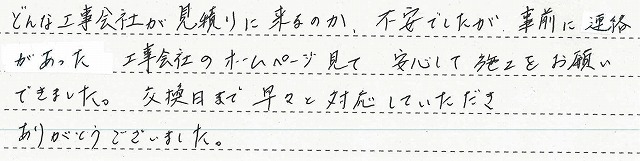 どんな工事会社が見積りに来るのか、不安でしたが 事前に連絡
があった 工事会社のホームページ見て 安心して施工をお願い
できました。 交換日まで早々と対応していただき
ありがとうございました。